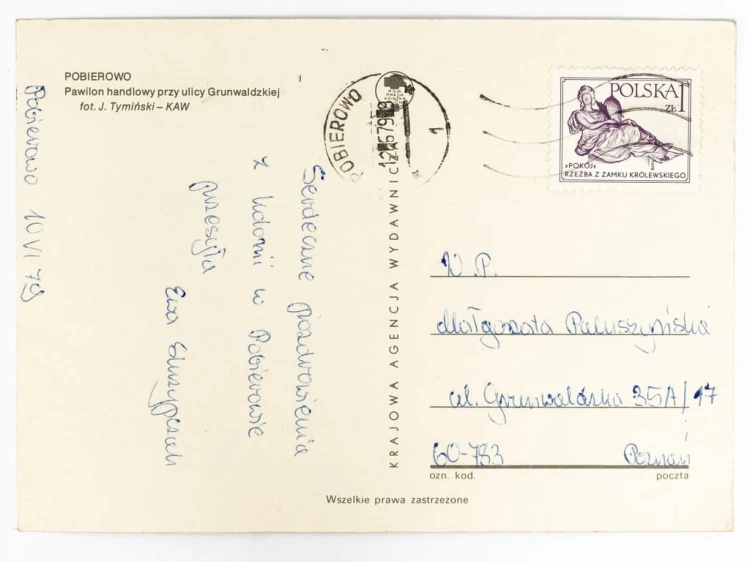 POBIEROWO
Pawilon handlowy przy ulicy Grunwaldzkiej
fot. J. Tymiński – KAW
Pobierowo 10 VI 79
Serdeczne pozdrowienia
z kolonii w Pobierowie
przesyła
Ewa
KRAJOWA AGENCJA WYDAWNICZA
POBIEROWO
1
POLSKA 1
ZŁ
»POKÓJ«
RZEŹBA Z ZAMKU KRÓLEWSKIEGO
W.P.
Małgorzata Paluszyńska
ul. Grunwaldzka 35A/17
60-783 Poznań
ozn. kod. poczta
Wszelkie prawa zastrzezone